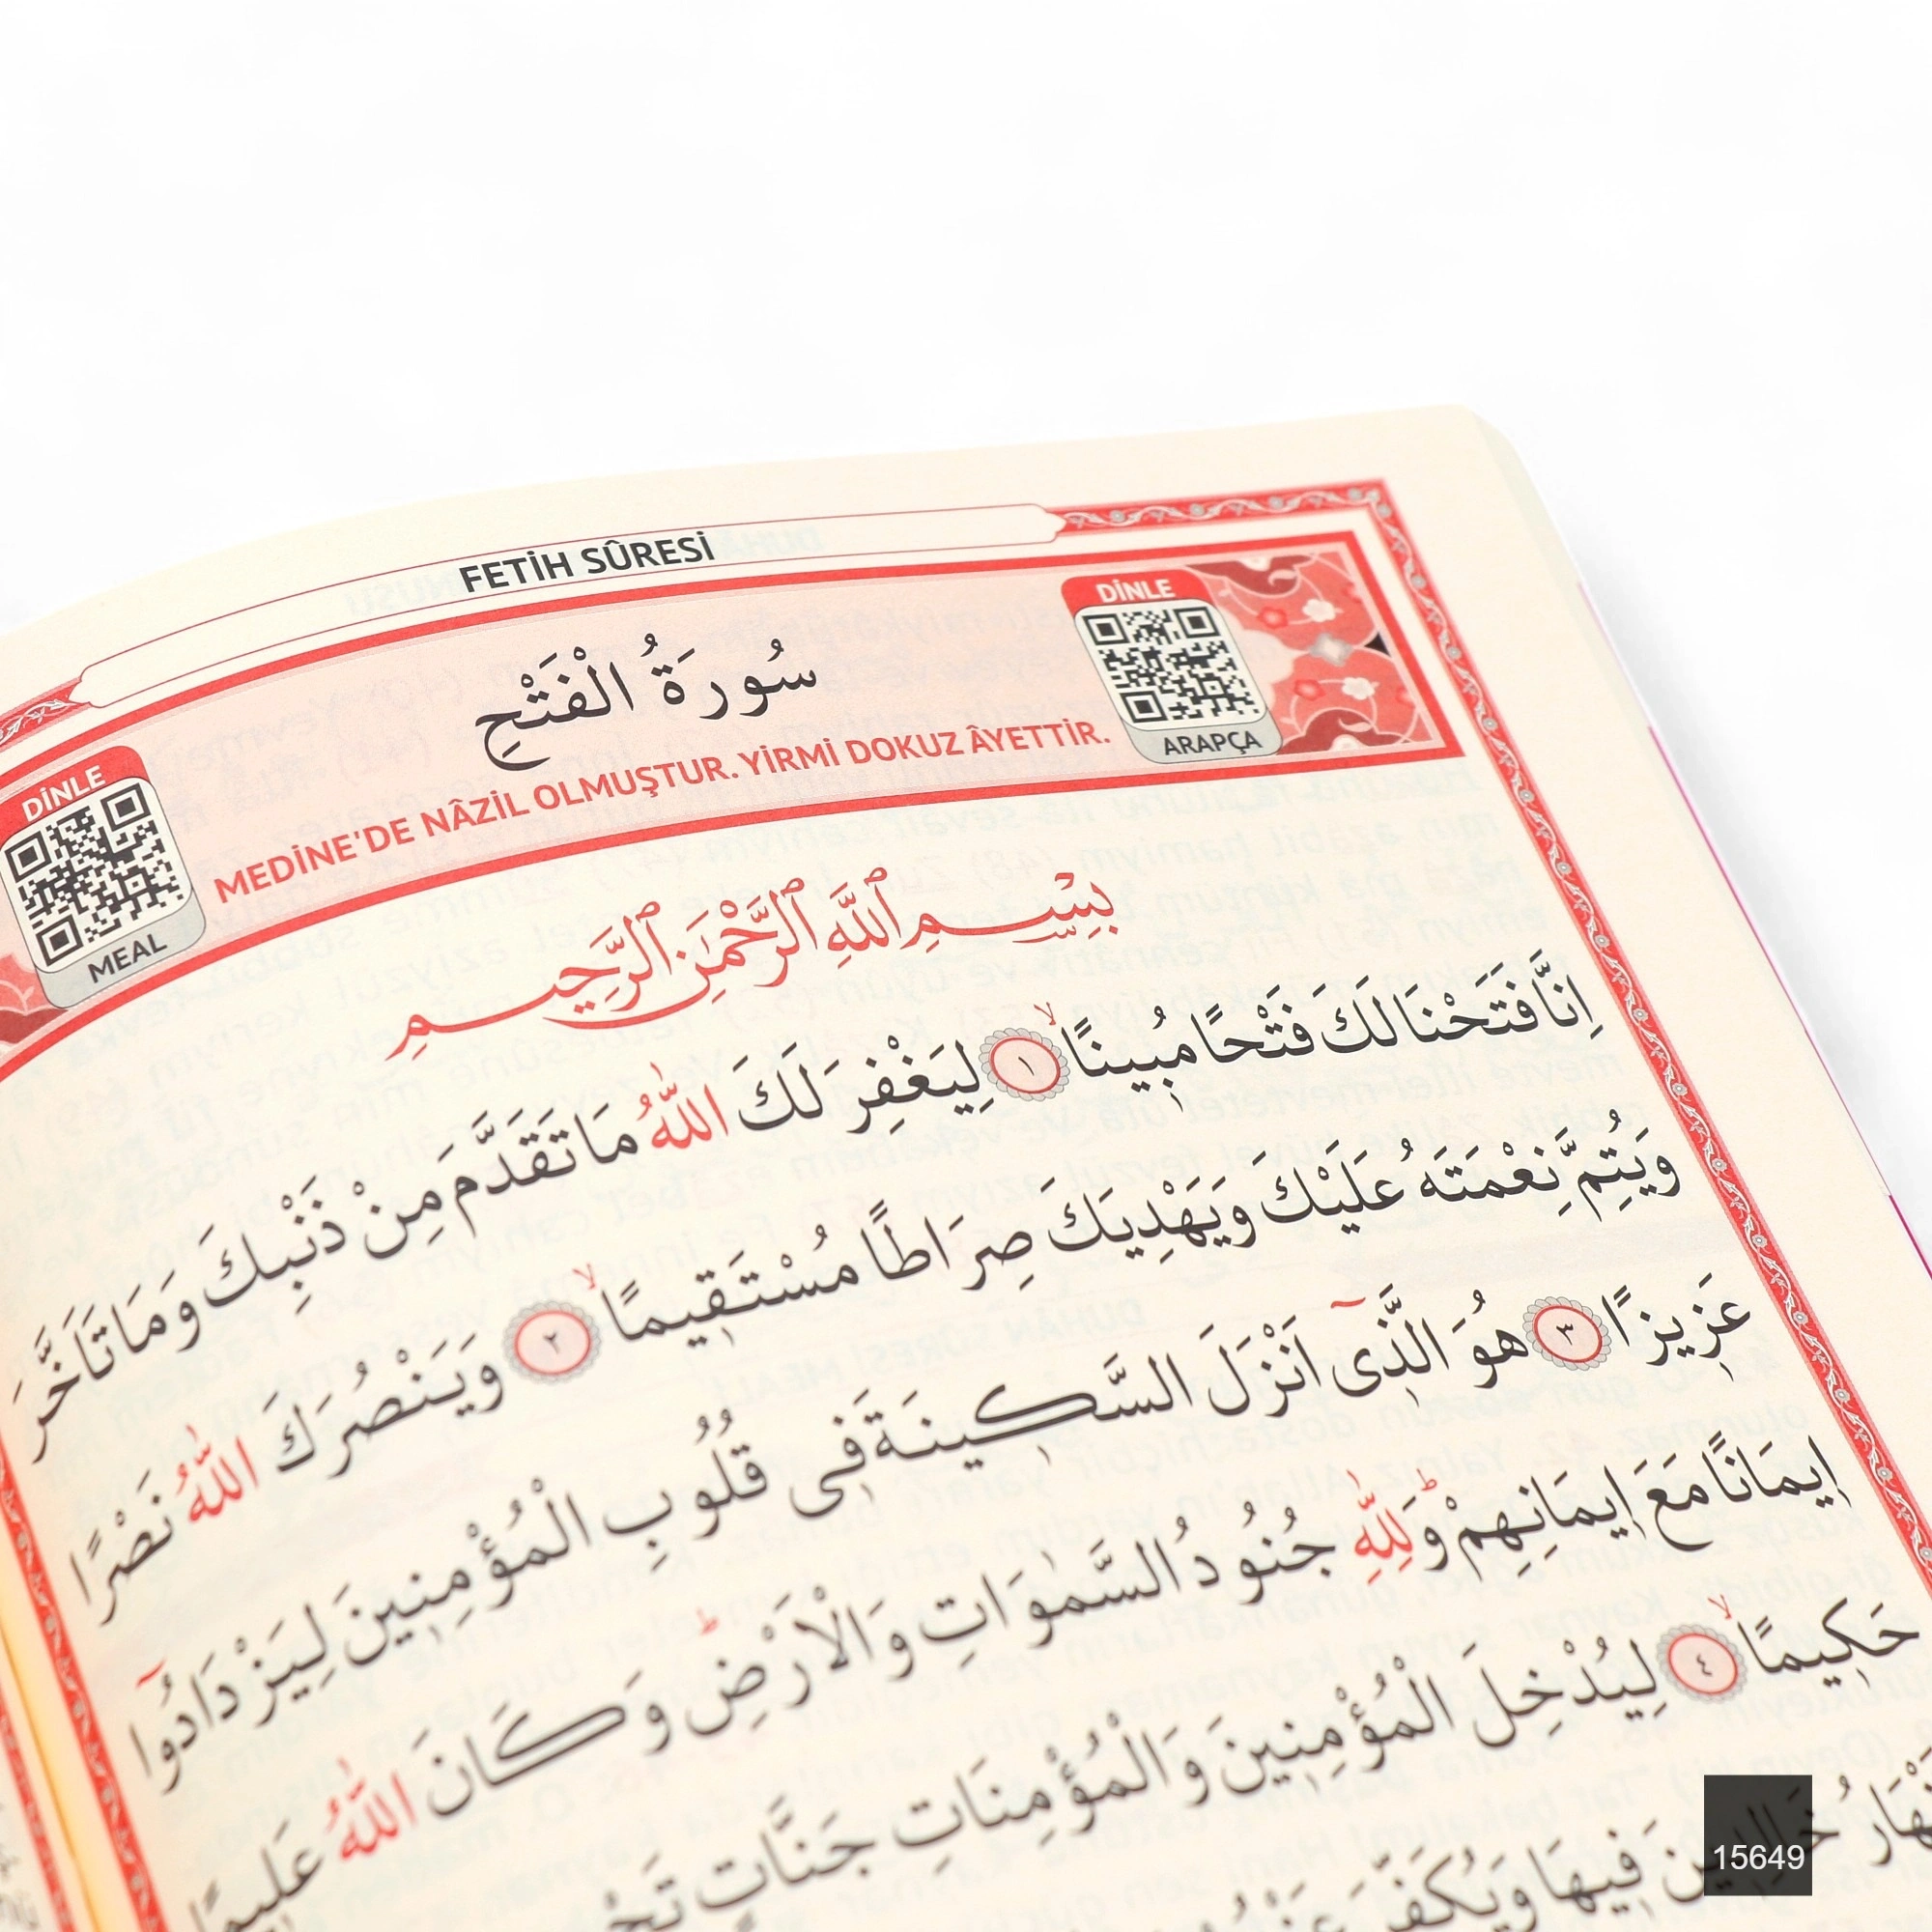 FETİH SÛRESİ
سُورَةُ الْفَتْحِ
DİNLE
ARAPÇA
DİNLE
MEAL
MEDİNE'DE NÂZİL OLMUŞTUR. YİRMİ DOKUZ ÂYETTİR.
بِسْمِ اللّٰهِ الرَّحْمٰنِ الرَّحِيمِ
اِنَّا فَتَحْنَا لَكَ فَتْحًا مُبِينًاۙ ١ لِيَغْفِرَ لَكَ اللّٰهُ مَا تَقَدَّمَ مِنْ ذَنْبِكَ وَمَا تَاَخَّرَ
وَيُتِمَّ نِعْمَتَهُ عَلَيْكَ وَيَهْدِيَكَ صِرَاطًا مُسْتَقِيمًاۙ ٢ وَيَنْصُرَكَ اللّٰهُ نَصْرًا
عَزِيزًا ٣ هُوَ الَّذِٓى اَنْزَلَ السَّكِينَةَ فِى قُلُوبِ الْمُؤْمِنِينَ لِيَزْدَادُٓوا
اِيمَانًا مَعَ اِيمَانِهِمْۜ وَلِلّٰهِ جُنُودُ السَّمٰوَاتِ وَالْاَرْضِۜ وَكَانَ اللّٰهُ عَلِيمًا
حَكِيمًاۙ ٤ لِيُدْخِلَ الْمُؤْمِنِينَ وَالْمُؤْمِنَاتِ جَنَّاتٍ
خَالِدِينَ فِيهَا وَيُكَفِّرَ
15649